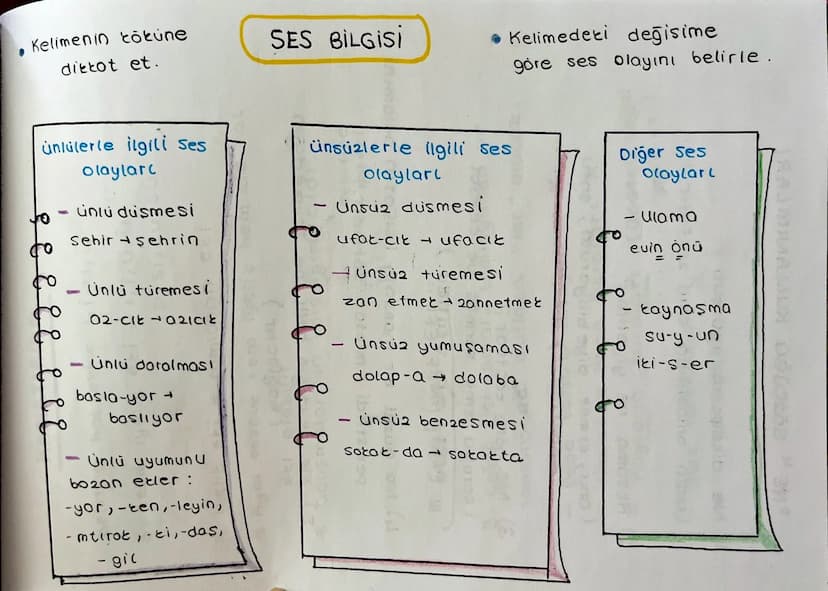 • Kelimenin köküne
dikkat et.
SES BİLGİSİ
• Kelimedeki değişime
göre ses olayını belirle.
Ünlülerle ilgili ses
olayları
- Ünlü düşmesi
şehir → şehrin
- Ünlü türemesi
az-cık → azıcık
- Ünlü daralması
başla-yor →
başlıyor
- Ünlü uyumunu
bozan ekler :
-yor, -ken, -leyin,
-mtırak, -ki, -daş,
- gil
Ünsüzlerle ilgili ses
olayları
- Ünsüz düşmesi
ufak-cık → ufacık
- Ünsüz türemesi
zan etmek → zannetmek
- Ünsüz yumuşaması
dolap-a → dolaba
- Ünsüz benzeşmesi
sokak-da → sokakta
Diğer ses
olayları
- Ulama
evin önü
- kaynaşma
su-y-un
iki-ş-er